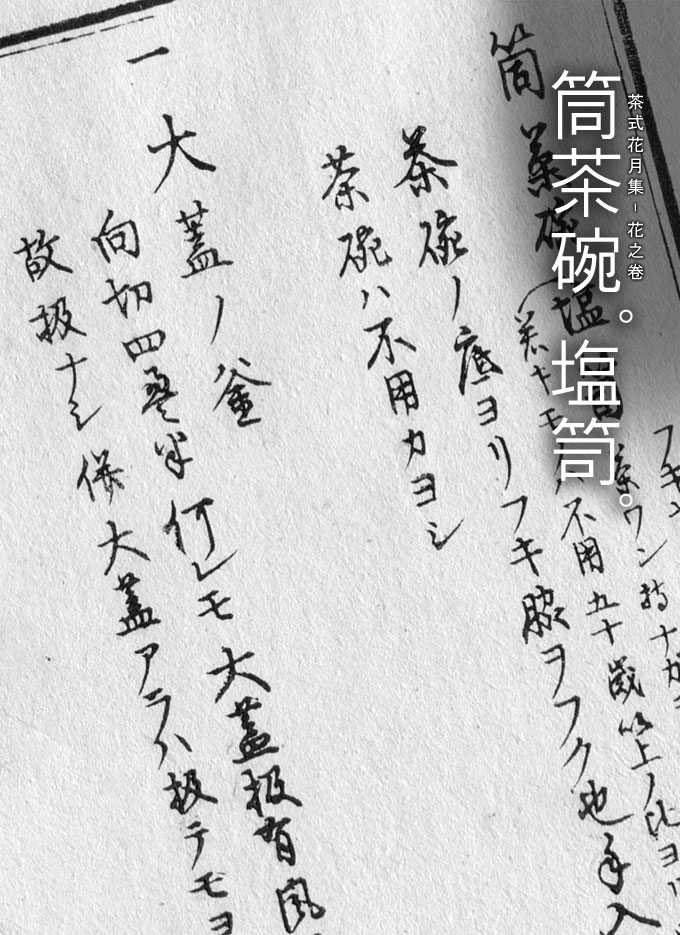 茶式花月集－花之巻
筒茶碗。塩笥。
筒茶碗塩笥
茶ワン持ナガラ
若キモノハ不用五十歳以上ノ比ヨリ
茶碗ノ底ヨリフキ脇ヲフク也手入
茶碗ハ不用カヨシ
一 大蓋ノ釜
向切四畳半何レモ大蓋扱有風
故扱ナシ併大蓋アラハ扱テモヨ